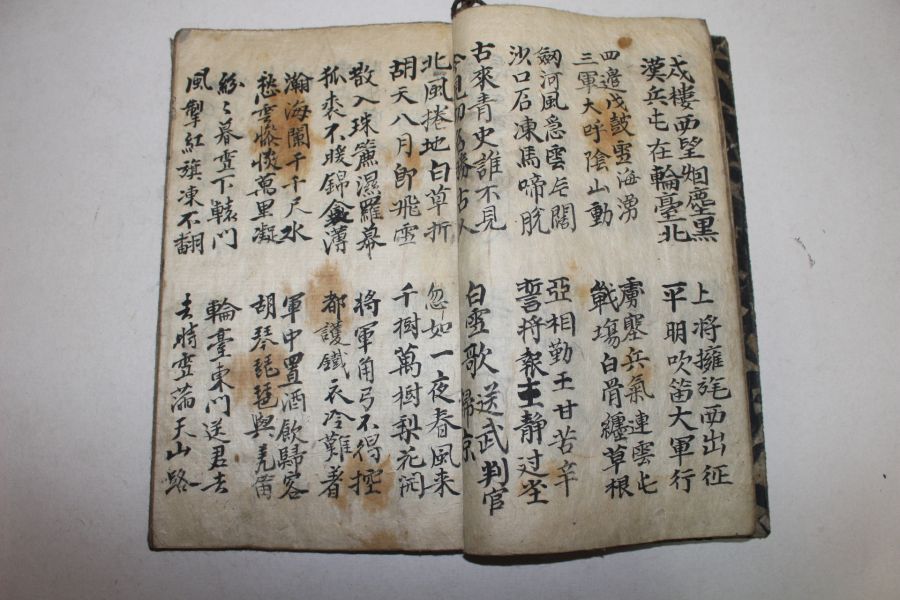 戍樓西望烟塵黑
漢兵屯在輪臺北
上將擁旄西出征
平明吹笛大軍行
四邉伐鼓雪海湧
三軍大呼陰山動
虜塞兵氣連雲屯
戰場白骨纏草根
劒河風急雲片闊
沙口石凍馬啼脫
亞相勤王甘苦辛
誓將報主静边塵
古來青史誰不見
今見功名勝古人
白雪歌送武判官歸京
北風捲地白草折
胡天八月即飛雪
忽如一夜春風来
千樹萬樹梨花開
散入珠簾濕羅幕
狐裘不暖錦衾薄
將軍角弓不得控
都護鐵衣冷難着
瀚海闌干千尺氷
愁雲慘憺萬里凝
軍中置酒飲歸客
胡琴琵琶與羌笛
紛〻暮雪下轅門
風掣紅旗凍不翻
輪臺東門送君去
去時雪滿天山路